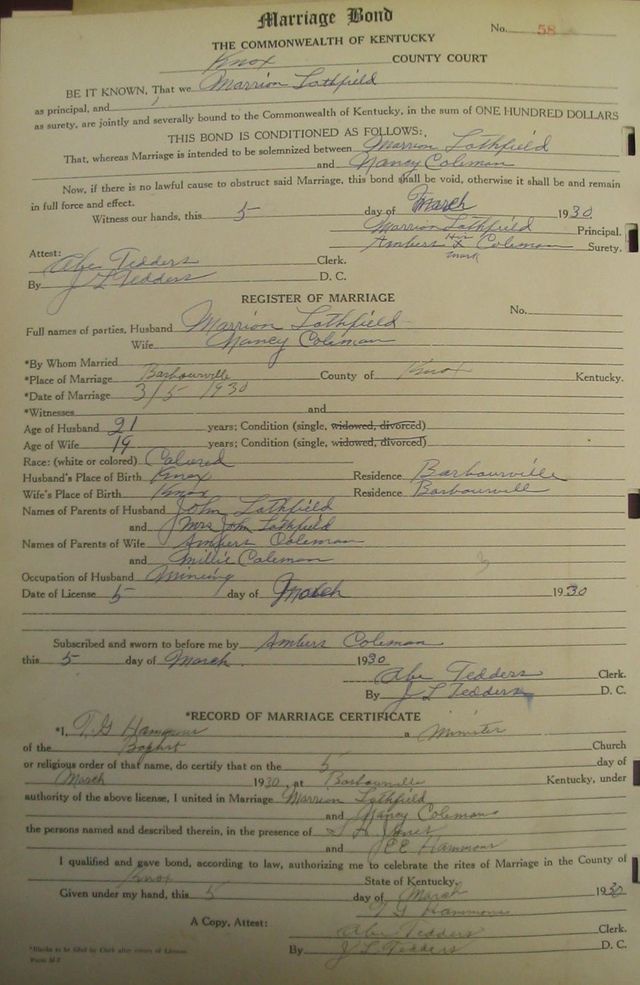 Marriage Bond
No. 58
THE COMMONWEALTH OF KENTUCKY
Knox COUNTY COURT
BE IT KNOWN, That we Marrion Lothfield
as principal, and
as surety, are jointly and severally bound to the Commonwealth of Kentucky, in the sum of ONE HUNDRED DOLLARS
THIS BOND IS CONDITIONED AS FOLLOWS:
That, whereas Marriage is intended to be solemnized between Marrion Lothfield
and Nancy Coleman
Now, if there is no lawful cause to obstruct said Marriage, this bond shall be void, otherwise it shall be and remain
in full force and effect.
Witness our hands, this 5 day of March 1930.
Marrion Lothfield Principal.
Ambers his X mark Coleman Surety.
Attest:
Abe Tedders Clerk.
By J L Tedders D. C.
REGISTER OF MARRIAGE
No.
Full names of parties, Husband Marrion Lothfield
Wife Nancy Coleman
*By Whom Married
*Place of Marriage Barbourville County of Knox Kentucky.
*Date of Marriage 3/5 1930
*Witnesses and
Age of Husband 21 years; Condition (single, widowed, divorced)
Age of Wife 19 years; Condition (single, widowed, divorced)
Race: (white or colored) Colored
Husband's Place of Birth Knox Residence Barbourville
Wife's Place of Birth Knox Residence Barbourville
Names of Parents of Husband John Lothfield
and Mrs John Lothfield
Names of Parents of Wife Ambers Coleman
and Millie Coleman
Occupation of Husband Mining
Date of License 5 day of March 1930
Subscribed and sworn to before me by Ambers Coleman
this 5 day of March 1930
Abe Tedders Clerk.
By J L Tedders D. C.
*RECORD OF MARRIAGE CERTIFICATE
*I, T G Hammons a Minister
of the Baptist Church
or religious order of that name, do certify that on the 5 day of
March 1930, at Barbourville Kentucky, under
authority of the above license, I united in Marriage Marrion Lothfield
and Nancy Coleman
the persons named and described therein, in the presence of Jones
and E E Hammons
I qualified and gave bond, according to law, authorizing me to celebrate the rites of Marriage in the County of
Knox State of Kentucky.
Given under my hand, this 5 day of March 1930
T G Hammons
A Copy, Attest: Abe Tedders Clerk.
By J L Tedders D. C.
*Blanks to be filled by Clerk after return of License